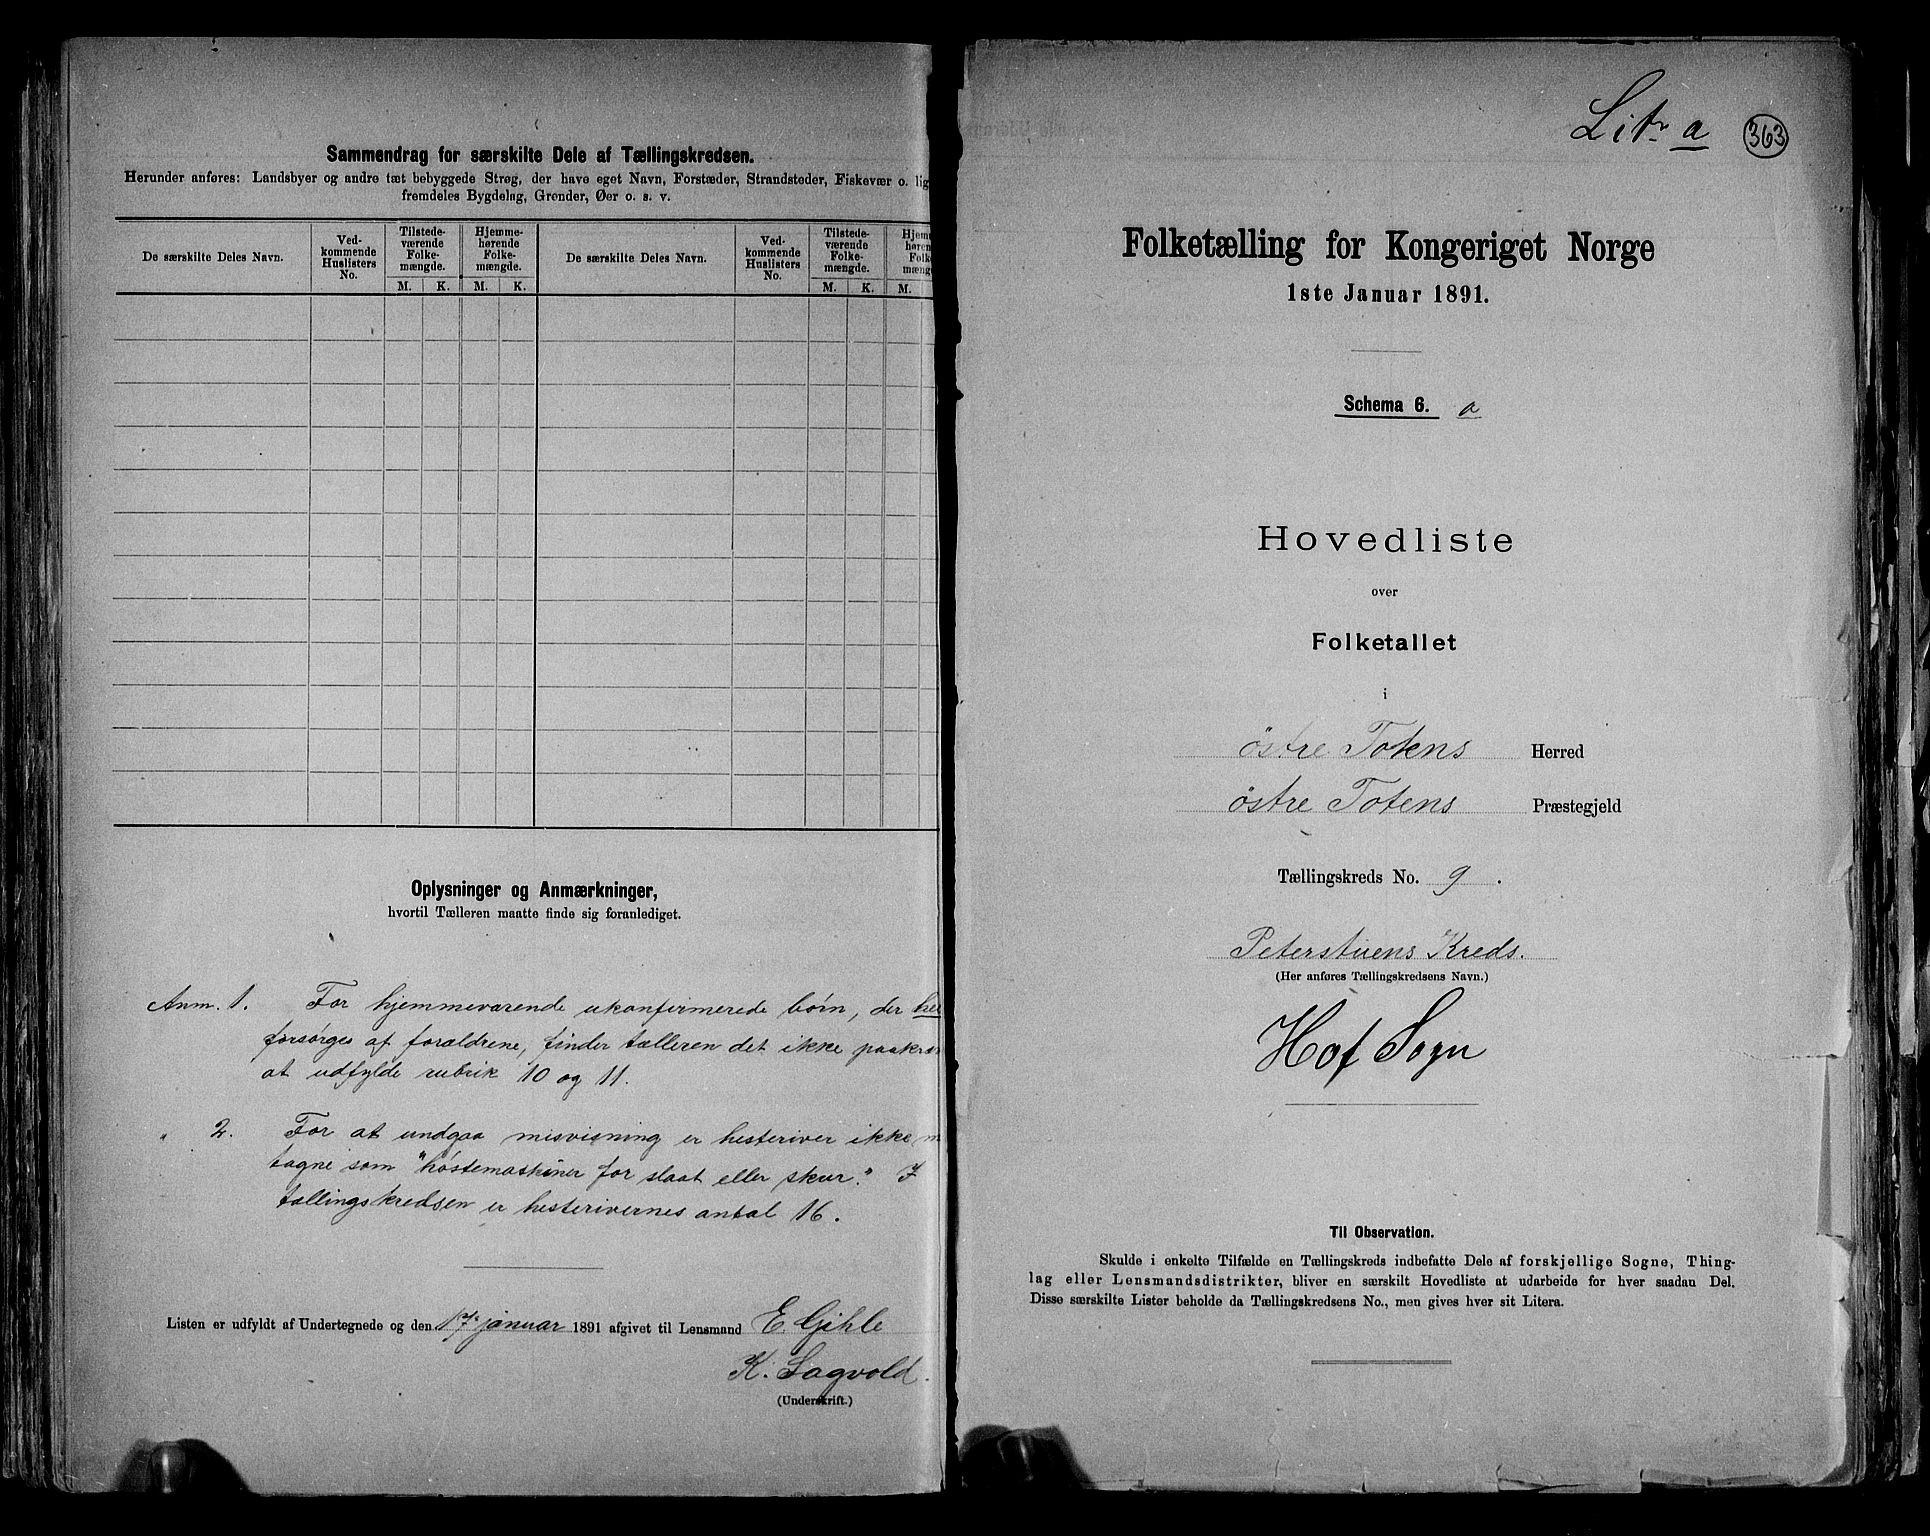 Sammendrag for særskilte Dele af Tællingskredsen.
Herunder anføres: Landsbyer og andre tæt bebyggede Strøg, der have eget Navn, Forstæder, Strandsteder, Fiskevær o. lig
fremdeles Bygdelag, Grender, Øer o. s. v.
De særskilte Deles Navn.
Ved-
kommende
Huslisters
No.
Tilstede-
værende
Folke-
mængde.
Hjemme-
hørende
Folke-
mængde.
De særskilte Deles Navn.
Ved-
kommende
Huslisters
No.
Tilstede-
værende
Folke-
mængde.
Hjem
høren
Folk
mængd
M. K. M. K. M. K. M.
Oplysninger og Anmærkninger,
hvortil Tælleren maatte finde sig foranlediget.
Anm. 1. For hjemmeværende ukonfirmerede børn, der hel
forsørges af forældrene, finder tælleren det ikke paakræ
at udfylde rubrik 10 og 11.
" 2. For at undgaa misvisning er hesteriver ikke m
tagne som "høstemaskiner for slaat eller skur." I
tællingskredsen er hesterivernes antal 16.
Listen er udfyldt af Undertegnede og den 17. januar 1891 afgivet til Lensmand E. Gihle
K. Sagvold.
(Underskrift.)
Litr a 363
Folketælling for Kongeriget Norge
1ste Januar 1891.
Schema 6. a
Hovedliste
over
Folketallet
i
østre Totens Herred
østre Totens Præstegjeld
Tællingskreds No. 9.
Peterstuens Kreds.
(Her anføres Tællingskredsens Navn.)
Hof Sogn
Til Observation.
Skulde i enkelte Tilfælde en Tællingskreds indbefatte Dele af forskjellige Sogne, Thing-
lag eller Lensmandsdistrikter, bliver en særskilt Hovedliste at udarbeide for hver saadan Del.
Disse særskilte Lister beholde da Tællingskredsens No., men gives hver sit Litera.